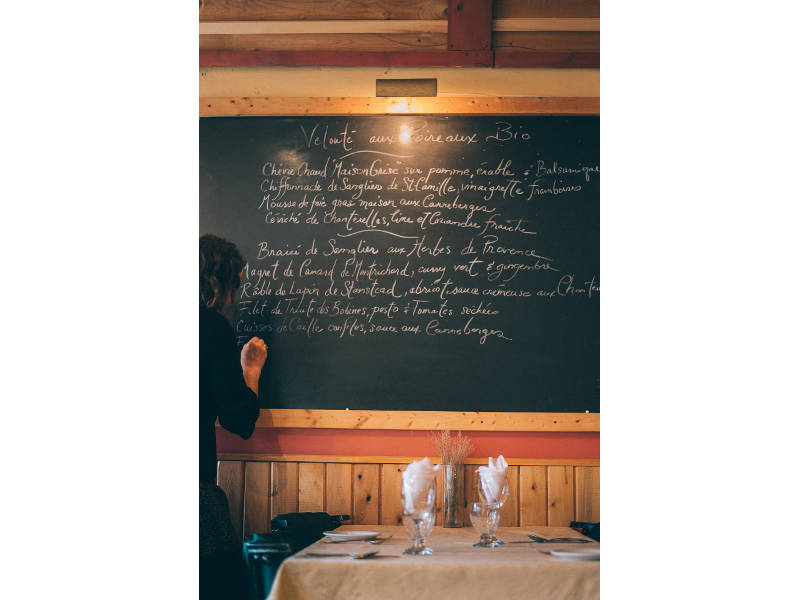 Velouté aux Poireaux Bio
Chèvre Chaud "Maison Grise" sur pomme, érable & Balsamique
Chiffonnade de Sangliers de St-Camille, vinaigrette framboises
Mousse de foie gras maison aux Canneberges
Céviché de Chanterelles, lime et Coriandre fraîche
Braisé de Sanglier aux Herbes de Provence
Magret de Canard de Montrichard, curry vert & gingembre
Râble de Lapin de Stanstead, abricot, sauce crémeuse aux
Filet de Truite des Bobines, pesto & Tomates séchées
Cuisses de Caille confites, sauce aux Canneberges
F